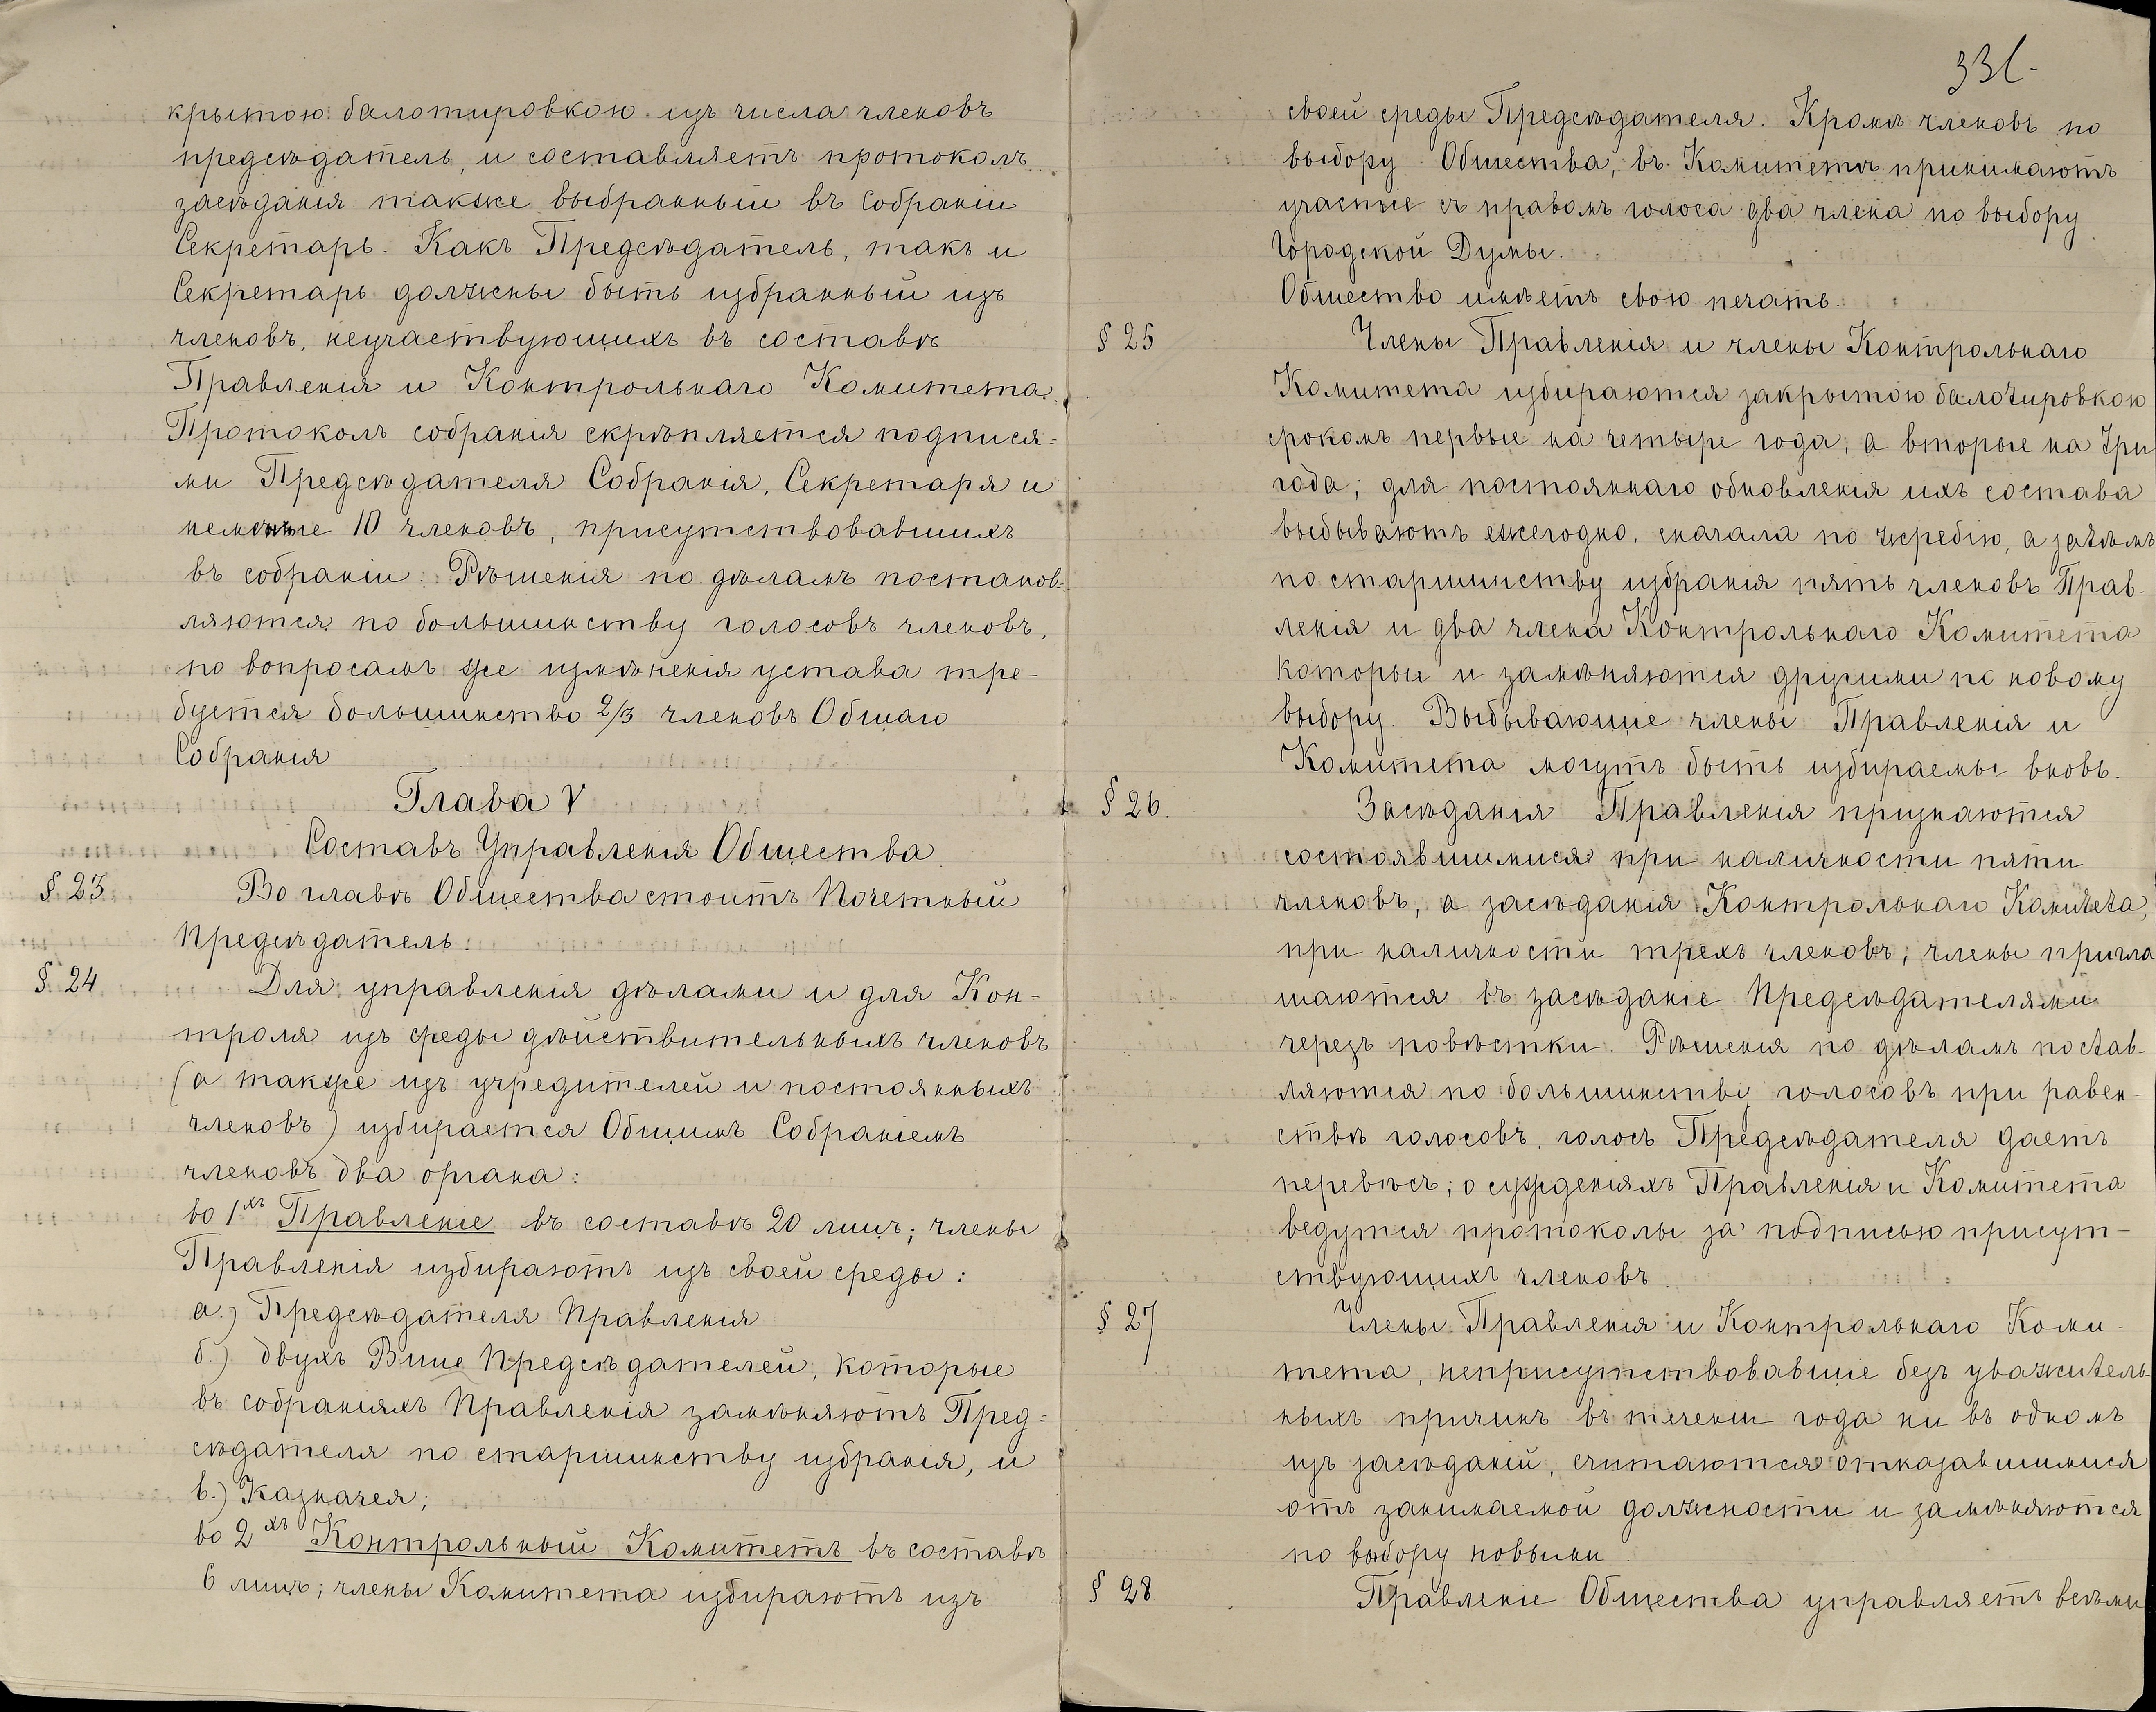 крытою балотировкою изъ числа членовъ
предсѣдатель, и составляетъ протоколъ
засѣданія также выбранный въ собраніи
Секретарь. Какъ Предсѣдатель, такъ и
Секретарь должны быть избранный изъ
членовъ, неучаствующихъ въ составѣ
Правленія и Контрольнаго Комитета.
Протоколъ собранія скрѣпляется подпися-
ми Предсѣдателя Собранія, Секретаря и
неменѣе 10 членовъ, присутствовавшихъ
въ собраніи. Рѣшенія по дѣламъ постанов-
ляются по большинству голосовъ членовъ,
по вопросамъ же измѣненія устава тре-
буется большинство 2/3 членовъ Общаго
Собранія
Глава V
Составъ Управленія Общества.
§ 23. Во главѣ Общества стоитъ Почетный
Предсѣдатель.
§ 24 Для управленія дѣлами и для Кон-
троля изъ среды дѣйствительныхъ членовъ
(а также изъ учредителей и постоянныхъ
членовъ) избирается Общимъ Собраніемъ
членовъ два органа:
во 1хъ Правленіе въ составѣ 20 лицъ; члены
Правленія избираютъ изъ своей среды:
а.) Предсѣдателя Правленія
б.) двухъ Вице Предсѣдателей, которые
въ собраніяхъ Правленія замѣняютъ Пред-
сѣдателя по старшинству избранія, и
в.) Казначея;
во 2хъ Контрольный Комитетъ въ составѣ
6 лицъ; члены Комитета избираютъ изъ
331.
своей среды Предсѣдателя. Кромѣ членовъ по
выбору Общества, въ Комитетѣ принимаютъ
участіе съ правомъ голоса два члена по выбору
Городской Думы.
Общество имѣетъ свою печать.
§ 25 Члены Правленія и члены Контрольнаго
Комитета избираются закрытою балотировкою
срокомъ первые на четыре года, а вторые на три
года; для постояннаго обновленія ихъ состава
выбываютъ ежегодно, сначала по жребію, а затѣмъ
по старшинству избранія пять членовъ Прав-
ленія и два члена Контрольнаго Комитета
которые и замѣняются другими по новому
выбору. Выбывающіе члены Правленія и
Комитета могутъ быть избираемы вновь.
§ 26. Засѣданія Правленія признаются
состоявшимися при наличности пяти
членовъ, а засѣданія Контрольнаго Комитета,
при наличности трехъ членовъ; члены пригла
шаются въ засѣданіе Предсѣдателями
черезъ повѣстки. Рѣшенія по дѣламъ постав-
ляются по большинству голосовъ при равен-
ствѣ голосовъ, голосъ Предсѣдателя даетъ
перевѣсъ; о сужденіяхъ Правленія и Комитета
ведутся протоколы за подписью присут-
ствующихъ членовъ.
§ 27 Члены Правленія и Контрольнаго Коми-
тета, неприсутствовавшіе безъ уважитель-
ныхъ причинъ въ теченіи года ни въ одномъ
изъ засѣданій, считаются отказавшимися
отъ занимаемой должности и замѣняются
по выбору новыми
§ 28 Правленіе Общества управляетъ всѣми